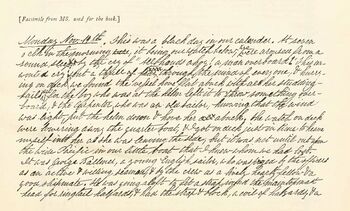 [Facsimile from MS. used for the book.]
Monday, Nov. 19th. This was a black day in our calendar. At seven
o'clk in the morning, it being our watch below, we were aroused from a
sound sleep by the cry of "all hands ahoy! a man overboard!" This un-
wonted cry sent a thrill through the heart of every one, & hurry-
ing on deck we found the vessel hove flat aback, with all her studding-
sails set; for the boy who was at the helm left it to throw something over-
board, & the carpenter, who was an old sailor, knowing that the wind
was light, put the helm down & hove her aback. The watch on deck
were lowering away the quarter boat, & I got on deck just in time to heave
myself into her as she was leaving the side; but it was not until out upon
the wide Pacific, in our little boat, that I knew whom we had lost.
It was George Ballmer, a young English sailor, who was prized by the officers
as an active & willing seaman, & by the crew as a lively, hearty fellow, &
good shipmate. He was going aloft to fit a strap round the main topmast
head, for ringtail halyards, & had the strap & block, a coil of halyards, & a